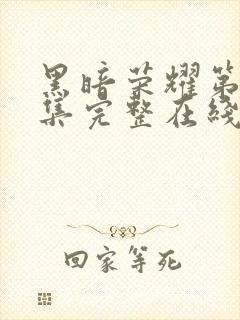 黑暗荣耀第
集完整在线
回家等死